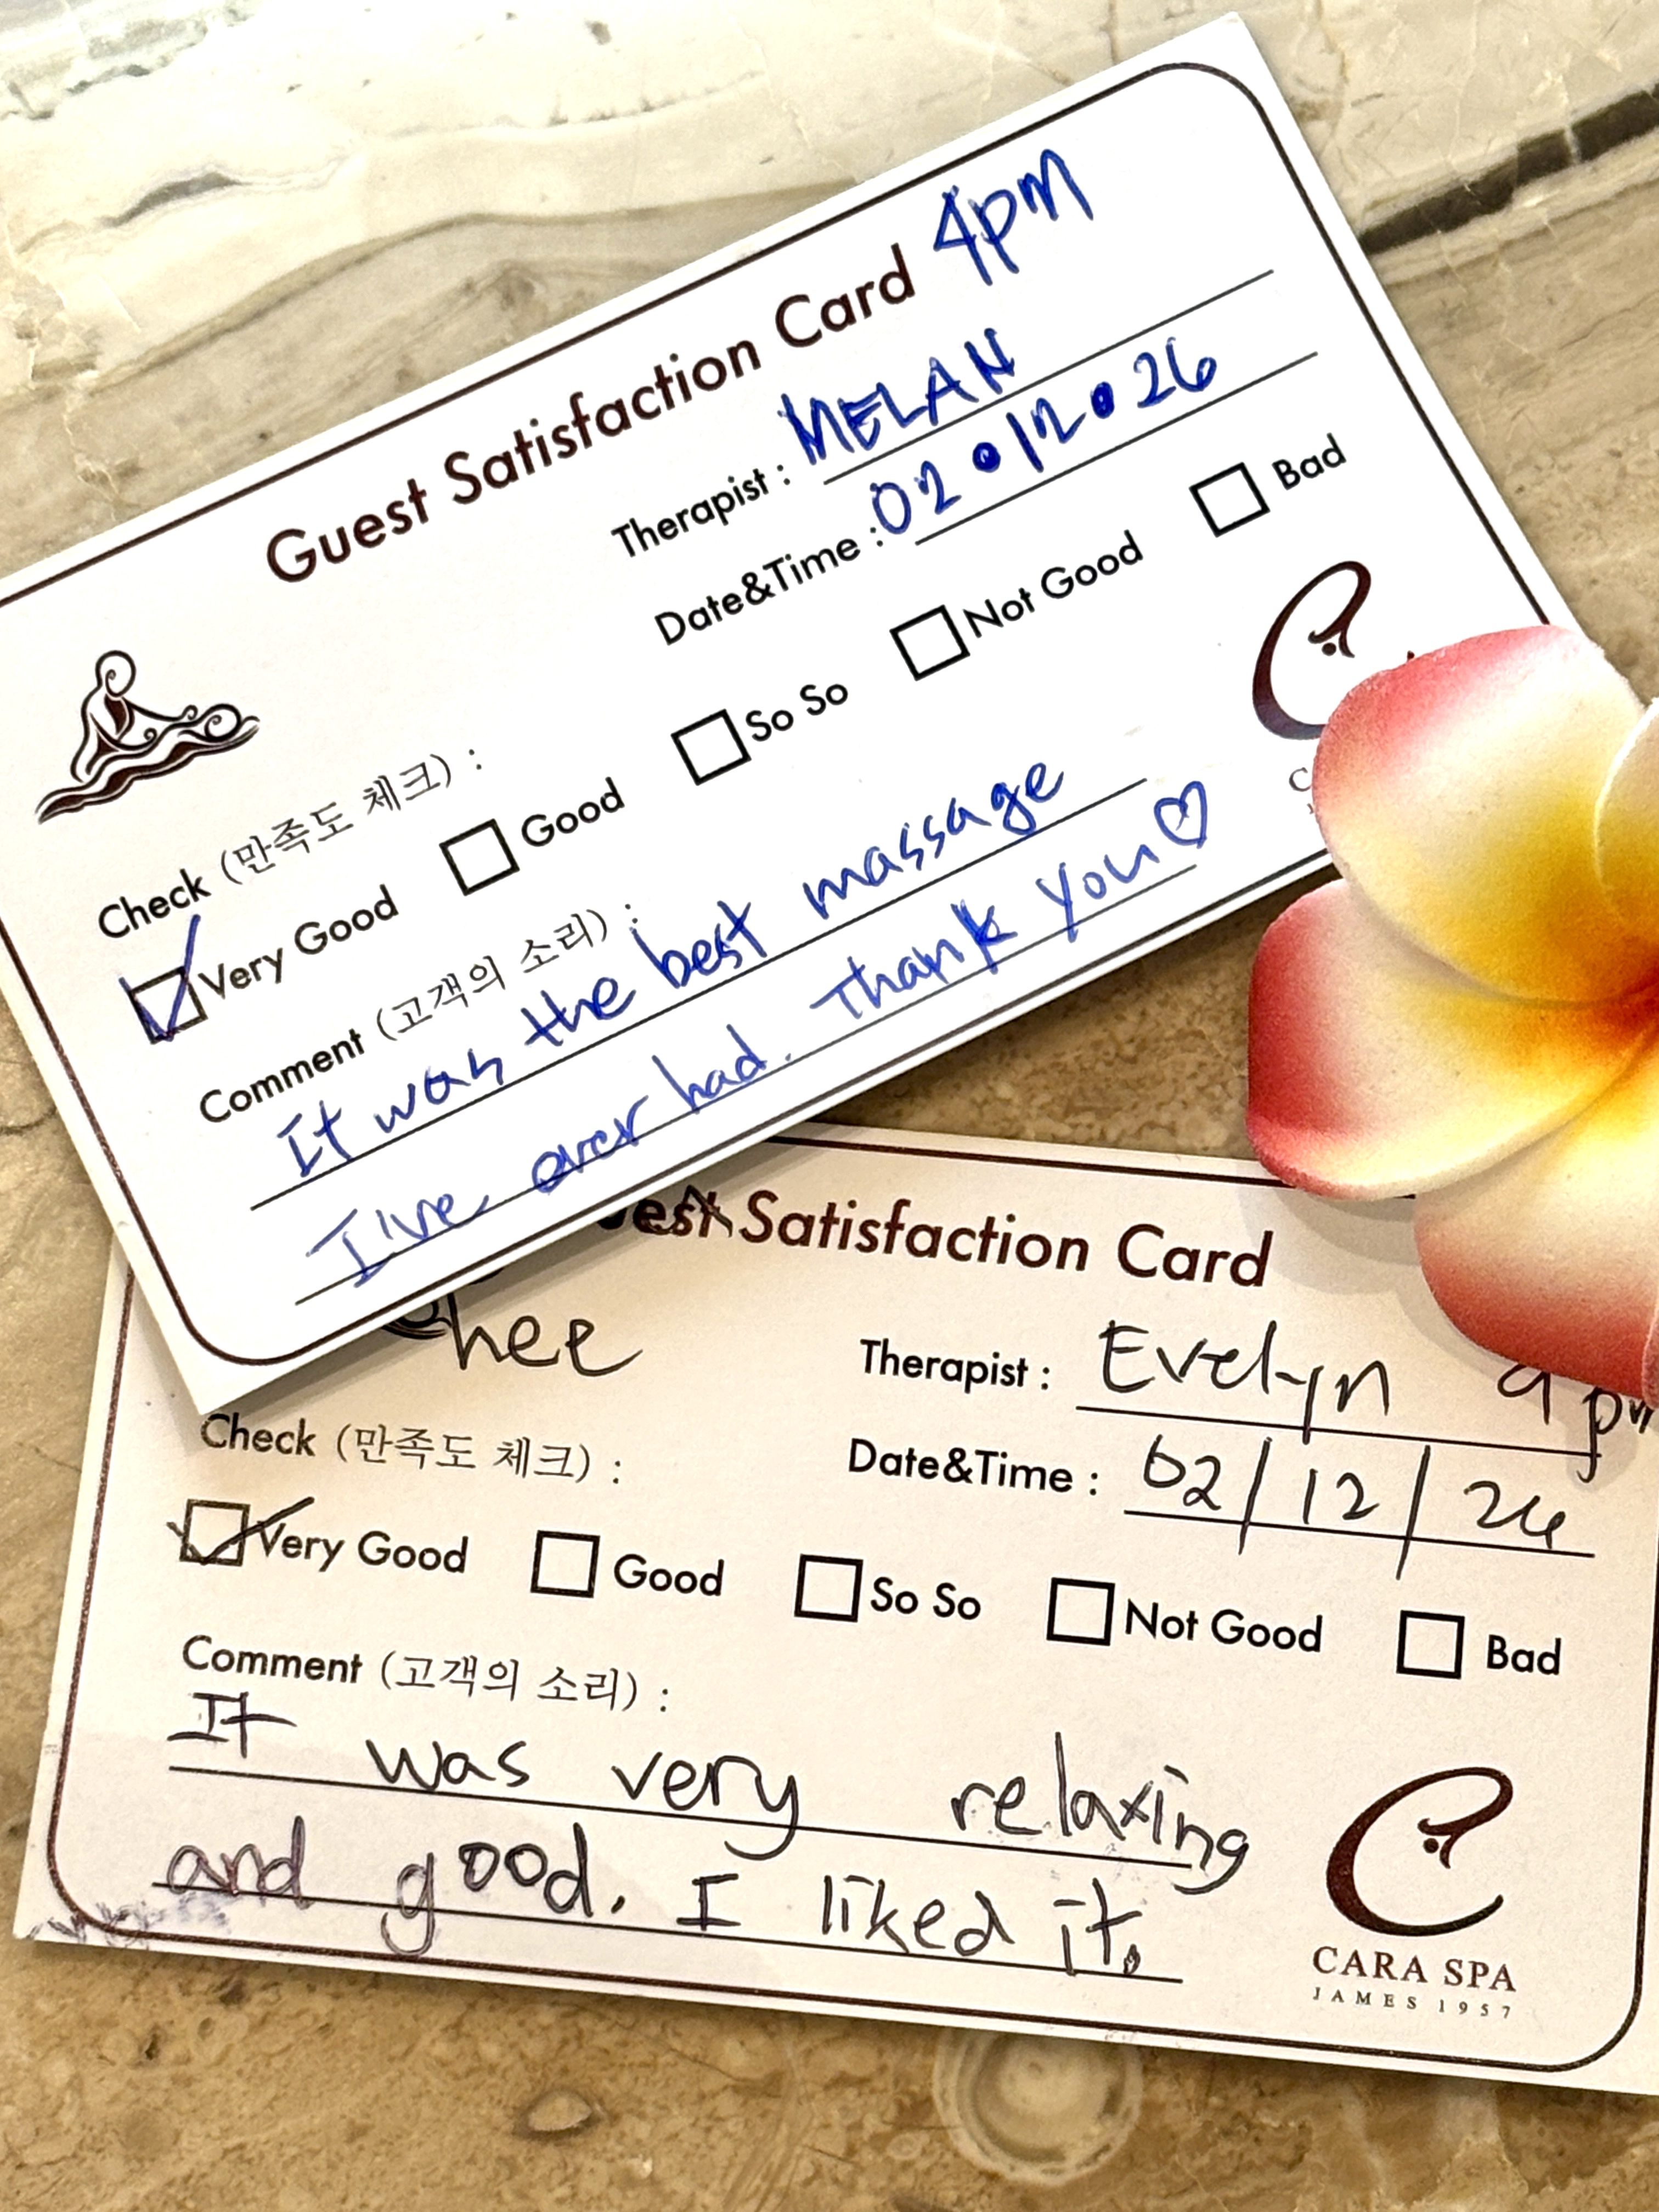 Guest Satisfaction Card 4pm
Therapist : MELAN
Date&Time : 02.12.26
Check (만족도 체크) :
Very Good Good So So Not Good Bad
Comment (고객의 소리) :
It was the best massage
I've ever had. Thank you♡
Satisfaction Card
hee
Therapist : Evelyn
Check (만족도 체크) :
Date&Time : 02/12/26
Very Good Good So So Not Good Bad
Comment (고객의 소리) :
It was very relaxing
and good. I liked it.
CARA SPA
JAMES 1957